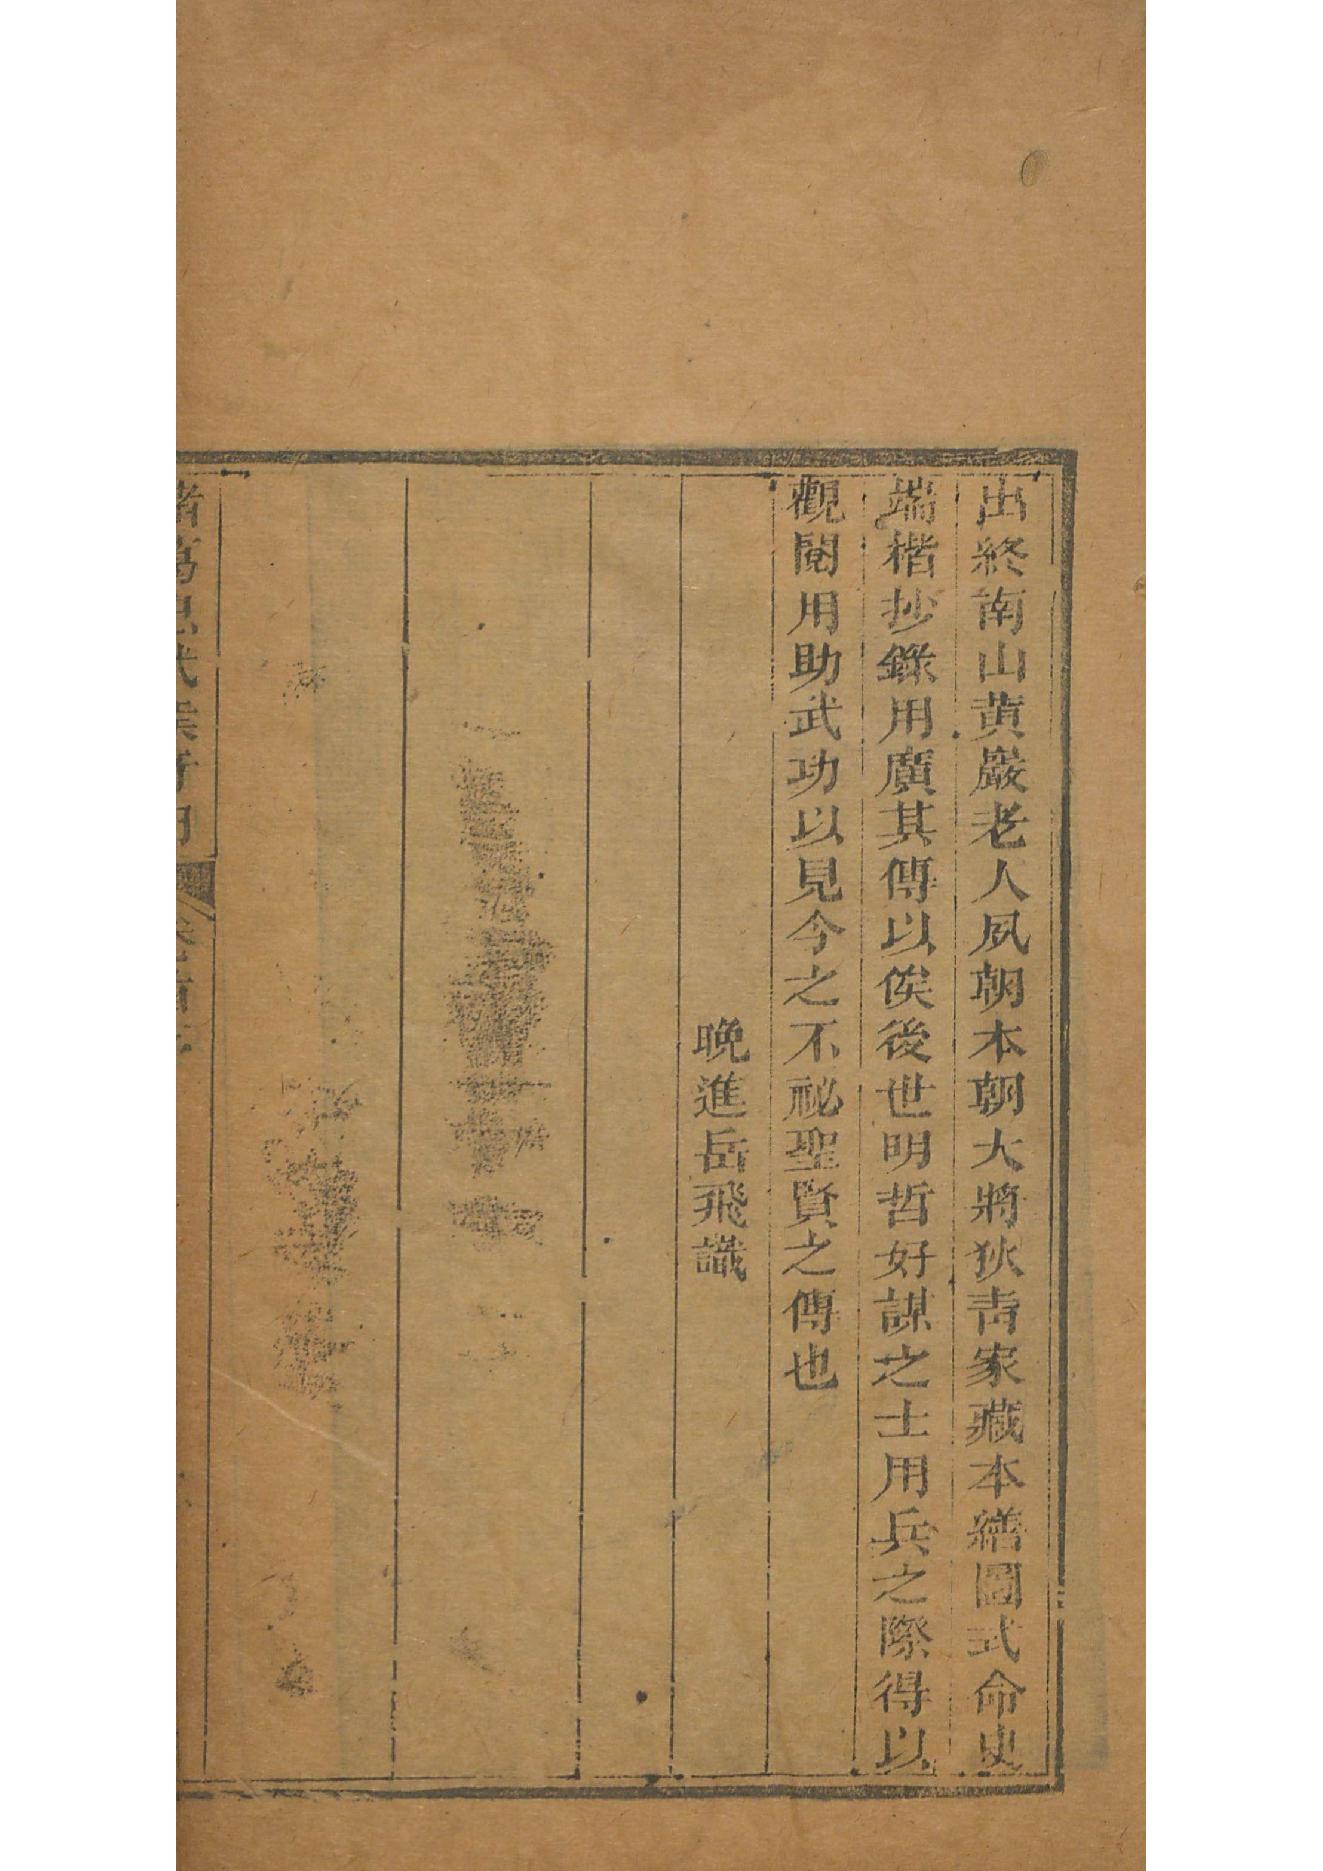 出終南山黄巖老人夙朝本朝大將狄青家藏本繕圖式命史
端楷抄錄用廣其傳以俟後世明哲好謀之士用兵之際得以
觀閱用助武功以見今之不祕聖賢之傳也
晚進岳飛識